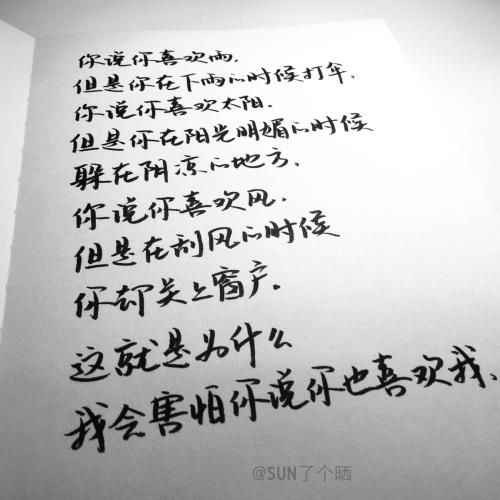 你说你喜欢雨.
但是你在下雨的时候打伞.
你说你喜欢太阳.
但是你在阳光明媚的时候
躲在阴凉的地方.
你说你喜欢风.
但是在刮风的时候
你却关上窗户.
这就是为什么
我会害怕你说你也喜欢我.
@SUN了个晒